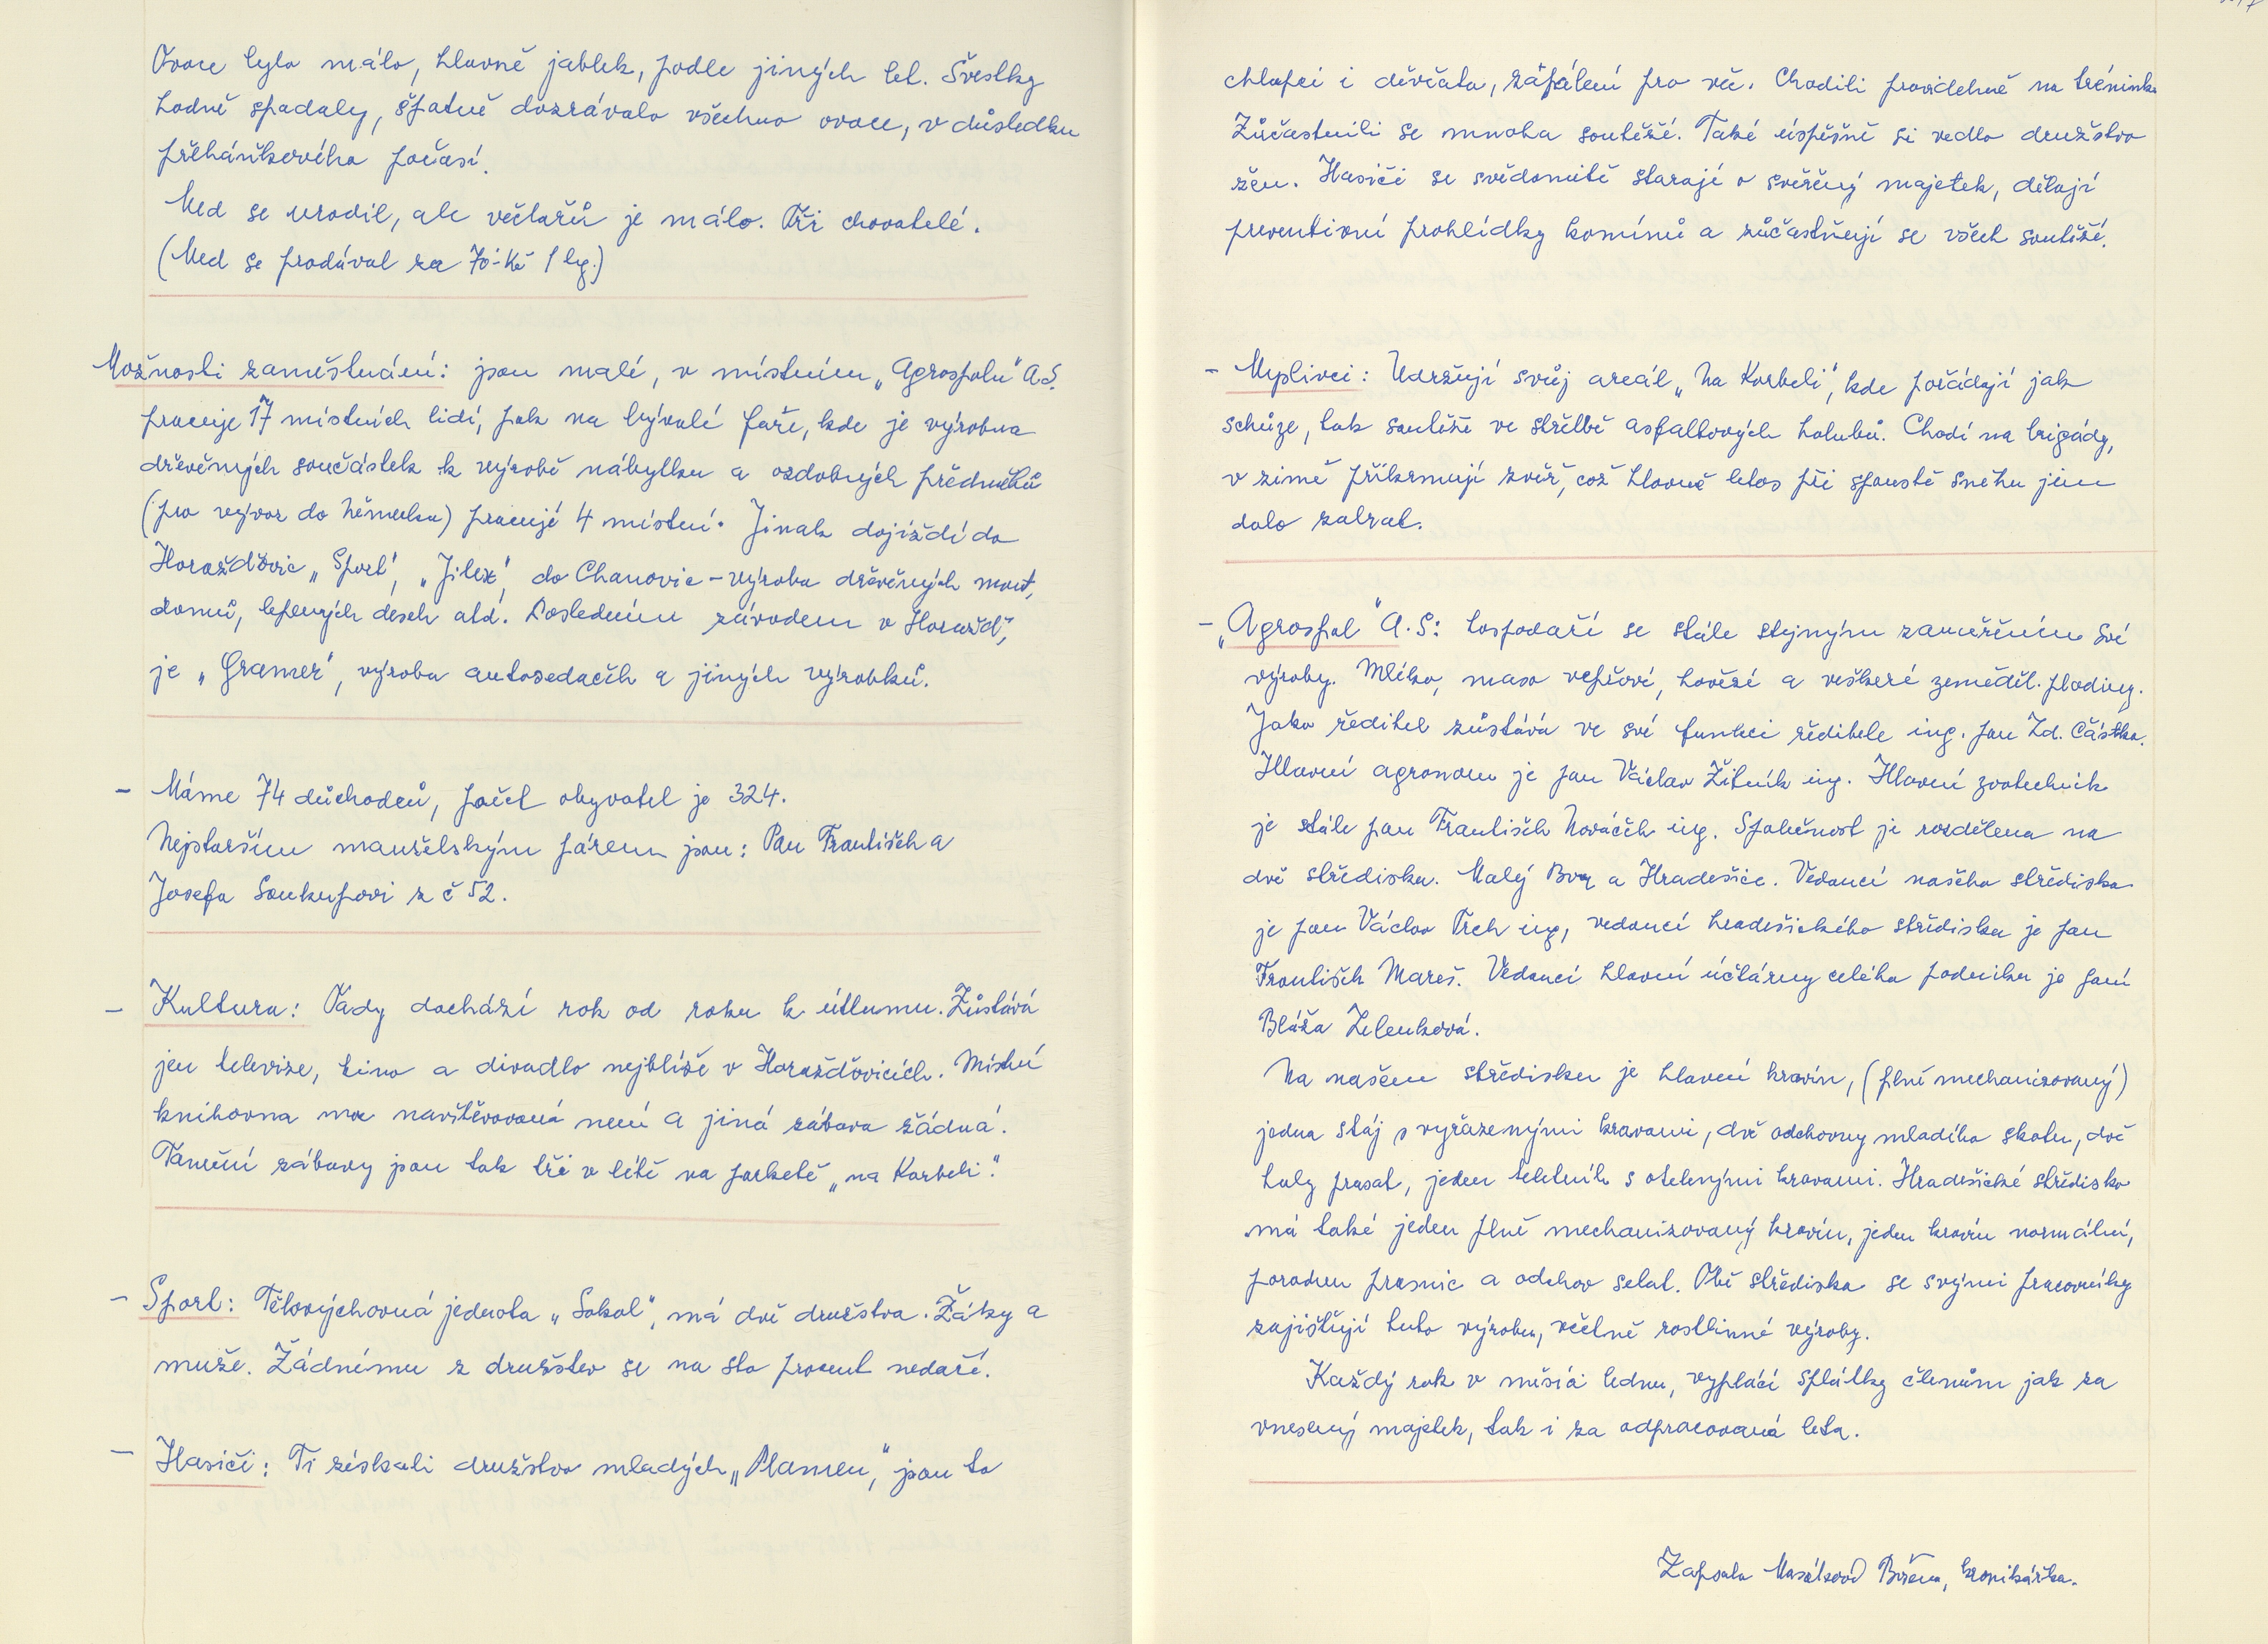 Ovoce bylo málo, hlavně jablek, podle jiných let. Švestky
hodně spadaly, špatně dozrávalo všechno ovoce, v důsledku
přeháňkového počasí.
Med se urodil, ale včelařů je málo. Tři chovatelé.
(Med se prodával za 70-Kč 1 kg.)
Možnosti zaměstnání: jsou malé, v místním „Agrospolu" A.S.
pracuje 17 místních lidí, pak na bývalé faře, kde je výrobna
dřevěných součástek k výrobě nábytku a ozdobných předmětů
(pro vývoz do Německa) pracují 4 místní. Jinak dojíždí do
Horažďovic „Sport", „Jitex", do Chanovic - výroba dřevěných mont,
domů, lepených desek atd. Posledním závodem v Horažď,
je „Gramer", výroba autosedaček a jiných výrobků.
- Máme 74 důchodců, počet obyvatel je 324.
Nejstarším manželským párem jsou: Pan František a
Josefa Soukupovi z č 52.
- Kultura: Tady dochází rok od roku k útlumu. Zůstává
jen televize, kino a divadlo nejblíže v Horažďovicích. Místní
knihovna moc navštěvovaná není a jiná zábava žádná.
Taneční zábavy jsou tak tři v létě na parketě „na Korbeli".
- Sport: Tělovýchovná jednota „Sokol", má dvě družstva. Žáky a
muže. Žádnému z družstev se na sto procent nedaří.
- Hasiči: Ti získali družstvo mladých „Plamen", jsou to
chlapci i děvčata, zapálení pro věc. Chodili pravidelně na tréninky
Zúčastnili se mnoha soutěží. Také úspěšně si vedlo družstvo
žen. Hasiči se svědomitě starají o svěřený majetek, dělají
preventivní prohlídky komínů a zůčastňují se všech soutěží.
- Myslivci: Udržují svůj areál „Na Korbeli", kde pořádají jak
schůze, tak soutěže ve střelbě asfaltových holubů. Chodí na brigády,
v zimě přikrmují zvěř, což hlavně letos při spoustě sněhu jim
dalo zabrat.
- „Agrospol" A.S: hospodaří se stále stejným zaměřením své
výroby. Mléko, maso vepřové, hovězí a veškeré zeměděl. plodiny.
Jako ředitel zůstává ve své funkci ředitele ing. pan Zd. Částka.
Hlavní agronom je pan Václav Žitník ing. Hlavní zootechnik
je stále pan František Nováček ing. Společnost je rozdělena na
dvě střediska. Malý Bor a Hradešice. Vedoucí našeho střediska
je pan Václav Trch ing, vedoucí hradešického střediska je pan
František Mareš. Vedoucí hlavní účtárny celého podniku je paní
Bláža Zelenková.
Na našem středisku je hlavní kravín, (plně mechanizovaný)
jedna stáj s vyřazenými kravami, dvě odchovny mladého skotu, dvě
haly prasat, jeden teletník s otelenými kravami. Hradešické středisko
má také jeden plně mechanizovaný kravín, jeden kravín normální,
porodnu prasnic a odchov selat. Obě střediska se svými pracovníky
zajišťují tuto výrobu, včetně rostlinné výroby.
Každý rok v měsíci lednu, vyplácí splátky členům jak za
vnesený majetek, tak i za odpracovaná léta.
Zapsala Masálková Božena, kronikářka.